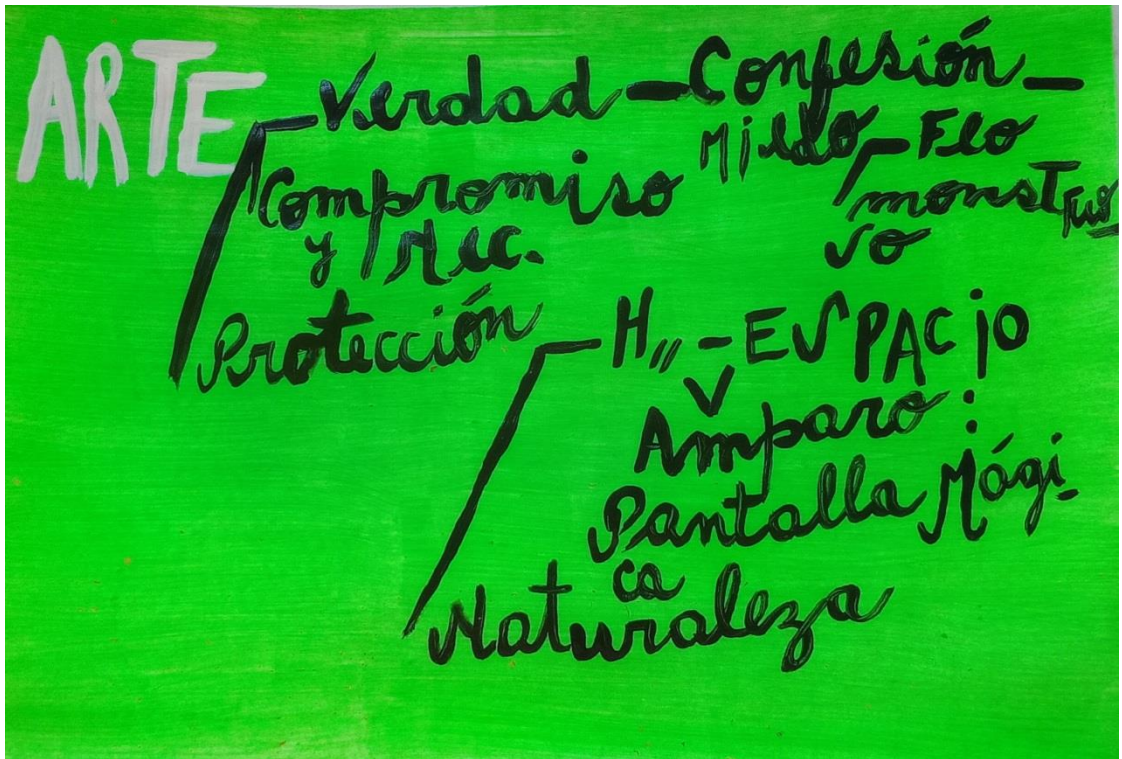 ARTE
Verdad - Confesión -
Miedo - Feo
monstruo
so
Compromiso
y Rec.
Protección - H,, - ESPACiO
Amparo :
Pantalla Mági-
ca
Naturaleza